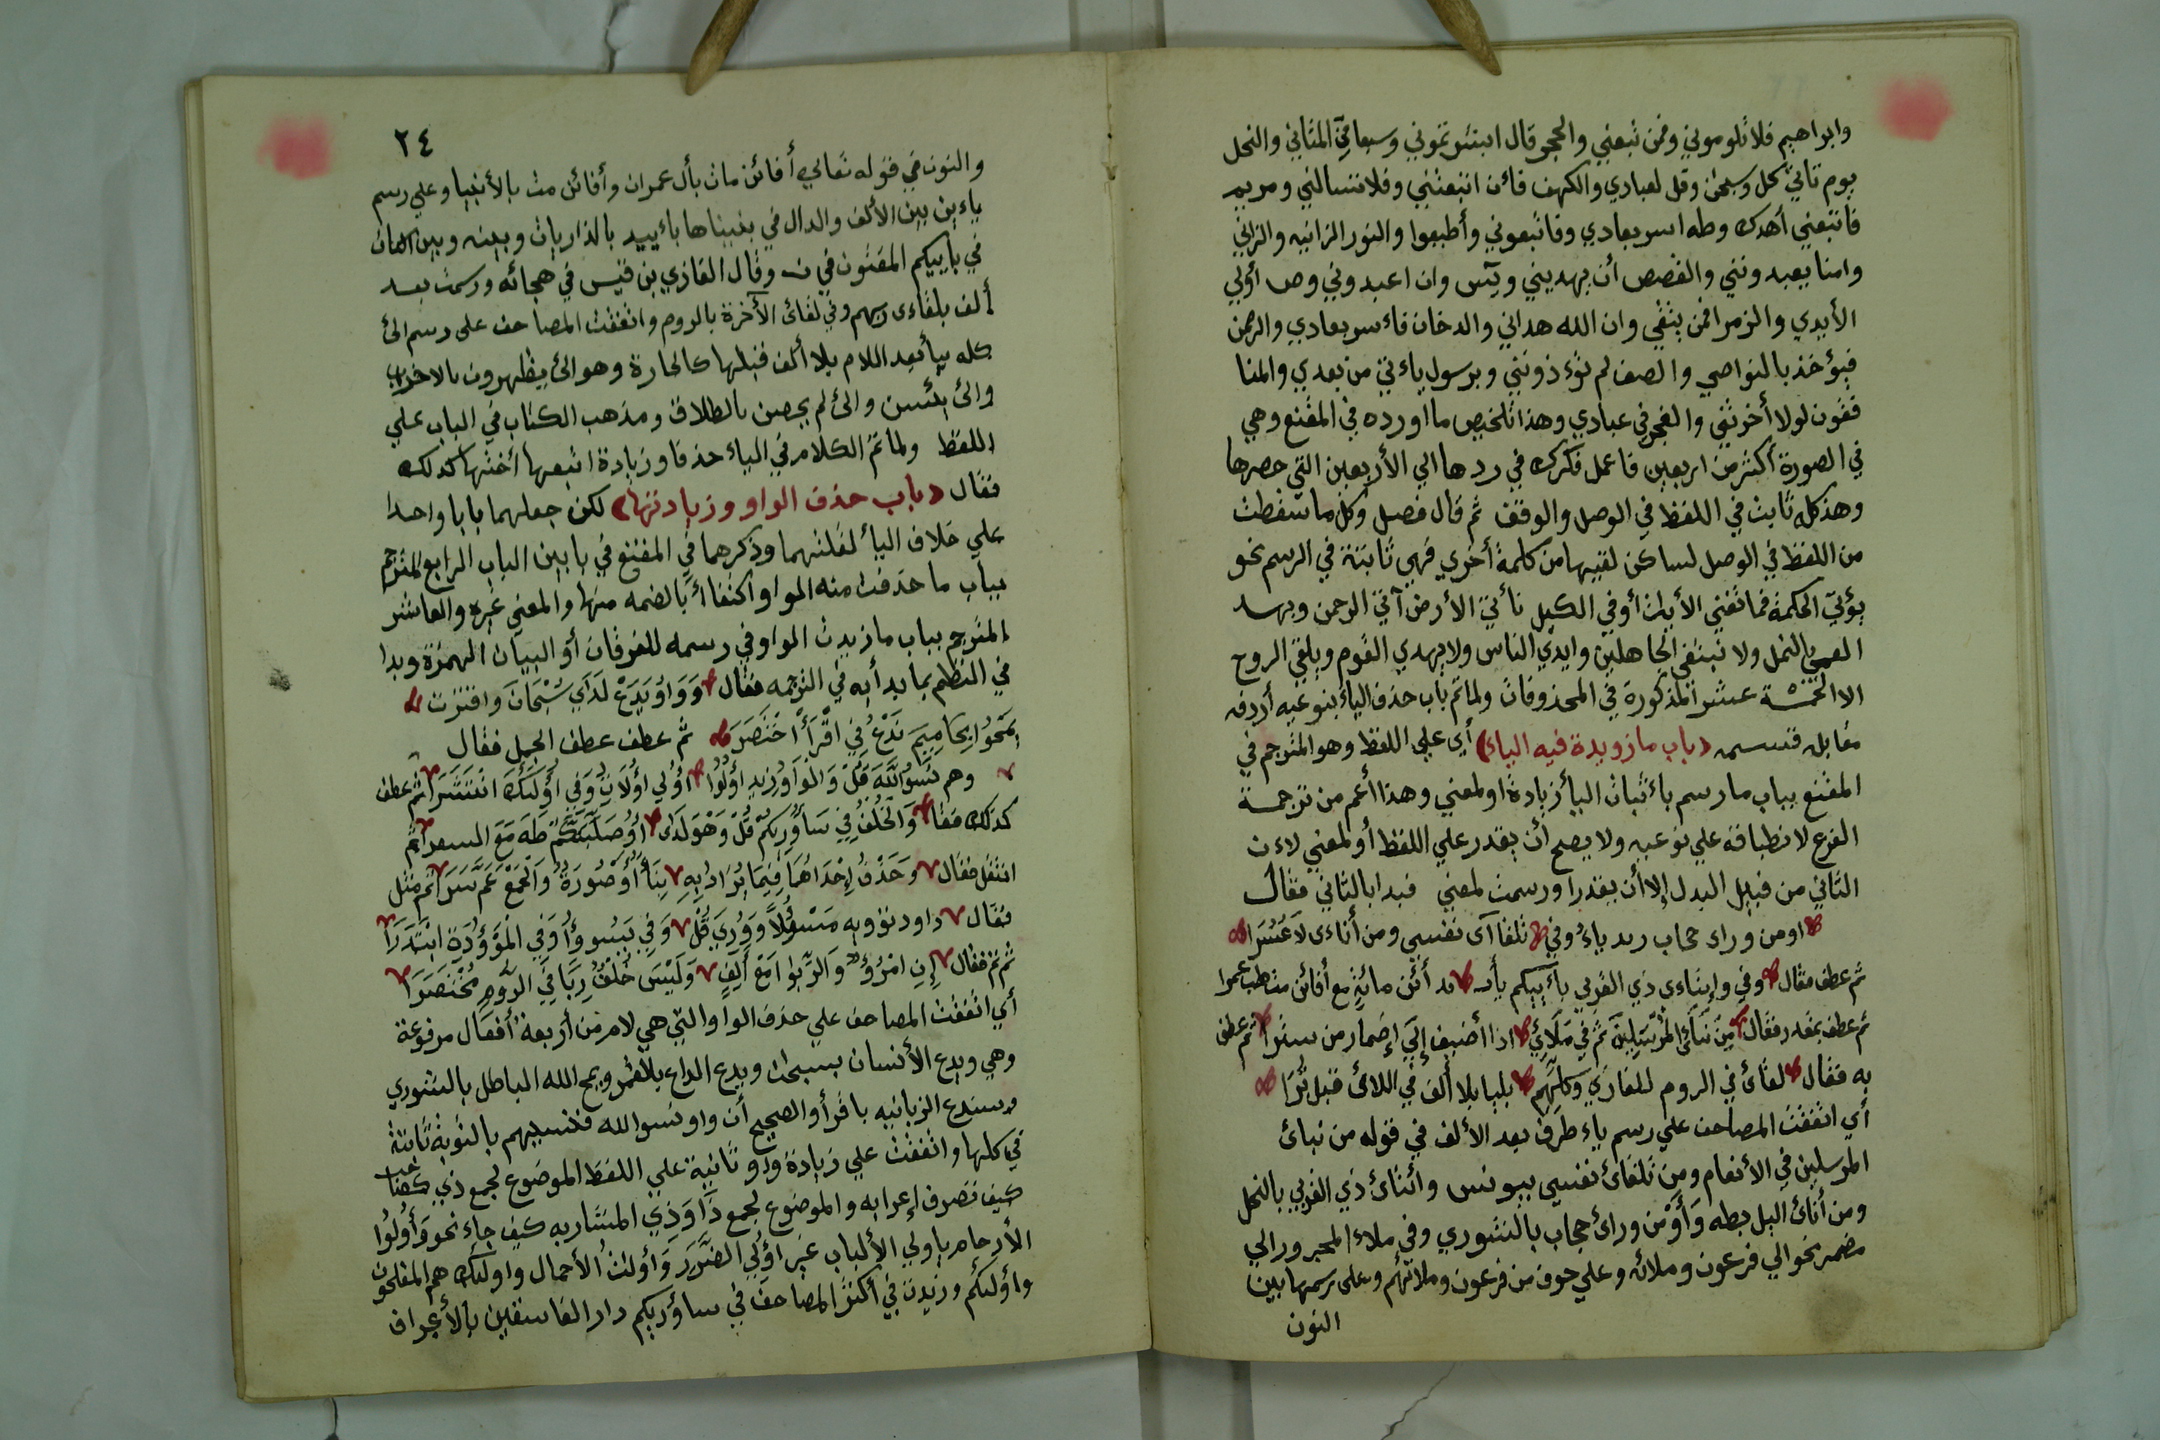 وابراهيم فلا تلوموني وفمن تبعني والحجر قال ابشرتموني وسبعا من المثاني والنحل
يوم تاتي كل وسبحن وقل لعبادي والكهف فان اتبعتني وفلا تسالني ومريم
فاتبعني اهدك وطه اسر بعبادي وفاتبعوني وأطيعوا والنور الزانيه والزاني
وامنا يعبدونني والقصص أن يهديني ويٓس وان اعبدوني وص أولي
الأيدي والزمر افمن يتقي وان الله هداني والدخان فاسر بعبادي والرحمن
فيؤخذ بالنواصي والصف لم تؤذونني وبرسول ياتي من بعدي والمنا
فقون لولا أخرتني والفجر في عبادي وهذا تلخيص ما اورده في المقنع وهي
في الصورة أكثر من اربعين فاعمل فكرك في ردها الي الأربعين التي حصرها
وهذ كله ثابت في اللفظ في الوصل والوقف ثم قال فصل وكل ما سقطت
من اللفظ في الوصل لساكن لقيها من كلمة أخري فهي ثابتة في الرسم نحو
يؤتي الحكمة فما تغني الأيات أوفي الكيل نأتي الأرض آتي الرحمن وبهد
العمي بالنمل ولا نبتغي الجاهلين وايدي الناس ولا يهدي القوم ويلقي الروح
الا الخمسة عشر المذكورة في المحذوفات ولما تم باب حذف الياء بنوعيه أردفه
مقابله قسمه (باب ما زويدة فيه الياء) أي علي اللفظ وهو المترجم في
المقنع بباب ما رسم باثبات اليأ زيادة او لمعني وهذا أعم من ترجمة
الفرع لانطباقه علي نوعيه ولا يصح أن يقدر علي اللفظ أو لمعني لان
الثاني من قبيل البدل إلا أن يقدر او رسمت لمعني فبدا بالثاني فقال
اومن وراي حجاب زيد ياءُ وفي تلقآى نفسي ومن أناءى لا عُسُرا
ثم عطف فقال وفي وإيتاءى ذي القربي باييكم بأيد أئن مائةٍ مع أفائن مت
ثم عطف بمقدر فقال مِنْ نَبَأئ المُرْسَلِينَ ثم في مَلَائِ اذا أضيف إلي إضمار من ستُرا ثم عطف
به فقال لقائ في الروم للغازي وكلهم بليا بلا ألف في اللائ قبل تُرا
أي اتفقت المصاحف علي رسم ياء طرف بعد الألف في قوله من نبائ
المرسلين في الأنعام ومن تلقائ نفسي بيونس وائتائ ذي القربي بالنحل
ومن أنائ اليل بطه وَأَوْمن ورائ حجاب بالشوري وفي ملاء المجرور الي
مضمر نحو الي فرعون وملائه وعلي خوف من فرعون وملائهم وعلى رسمها بين
النون
٢٤
والنون في قوله تعالي أفائن مات بأل عمران وأفائن مت بالأنبيا وعلي رسم
ياءين بين الألف والدال في بنيناها باييد بالذاريات وبينه وبين الكاف
في باييكم المفتون في ن وقال الغازي بن قيس في هجائه ورسمت بعد
ألف بلقاءى ربهم وفي لقائ الآخرة بالروم واتفقت المصاحف على رسم الئ
كله بيأ بعد اللام بلا ألف قبلها كالجارة وهو الئ يظهرون بالاحزاب
والئ يئسن والئ لم يحضن بالطلاق ومذهب الكتاب في الباب علي
اللفظ ولما تم الكلام في الياء حذفا وزيادة اتبعها أختها كذلك
فقال (باب حذف الواو وزيادتها) لكن جعلهما بابا واحدا
علي خلاف اليأ لقلتهما وذكرهما في المقنع في بابين الباب الرابع المترجم
بباب ما حذفت منه الواو اكتفاءً بالضمه منها والمعني غيره والعاشر
المترجم بباب ما زيدت الواو في رسمه للفرقان أو البيان الهمزة وبدا
في النظم بما بدأ به في الترجمه فقال وَوَاوُ يَدَعْ لَدَي سُبْحَانَ واقتربت
يَمْحُوا بِحَامِيمَ نَدْعُ فِي اقْرَأْ اخْتَصَرَ ثم عطف عطف الجمل فقال
وهم نَسُوا اللَّهَ قُلْ وَالْوَاوُ زِيدِ أوُلُوا أُوْلِي أوُلَاتُ وَفي أُوْلَئكَ انْتَشَرَا ثم عطف
كذلك فقا وَالْخُلْفُ فِي سَأُورِيكُمْ قُلْ وَهْوَ لَدَى أُوصَلِّبَنَّكُمْ طَهَ مَعَ الشعرا ثم
انتقل فقال وَحَذْفُ إِحْدَاهُمَا فِيمَا يُزَادُ بِهِ بِنَاً أَوْ صُورَةً وَالْجَمْعُ عَمَّ سَرَا ثم مثل
فقال داود تؤوِيه مَسْؤُلاً وَوُرِيَ قُلْ وَفي يَسُوؤُا وَفِي الْمَوْؤُدَةِ ابْتَدَرَا
ثم تم فقال إِنِ امْرُؤٌ وَالرِّبَوا مَعْ أَلِفٍ وَلَيْسَ خُلْفُ رِبًا فِي الرُّومِ مُخْتَصَرَا
أي اتفقت المصاحف علي حذف الواو التي هي لام من أربعة أفعال مرفوعة
وهي ويدع الأنسان بسبحان ويدع الداع بالقمر ويمح الله الباطل بالشوري
وسندع الزبانيه باقرأ والصحيح أن واو نسوا الله فنسيهم بالتوبة ثابتة
في كلها واتفقت علي زيادة واو ثانية علي اللفظ الموضوع لجمع ذي
كيف تصرف إعرابه والموضوع لجمع ذَا وَذِي المشار به كيف جاء نحو وَأُولُوا
الأرحام يا ولي الألباب غير اؤلي الضَّرَر وَأولتُ الأحمال واولئك هم المفلحون
وأولئكُم وزيدت في أكثر المصاحف في ساؤريكم دار الفاسقين بالأعراف